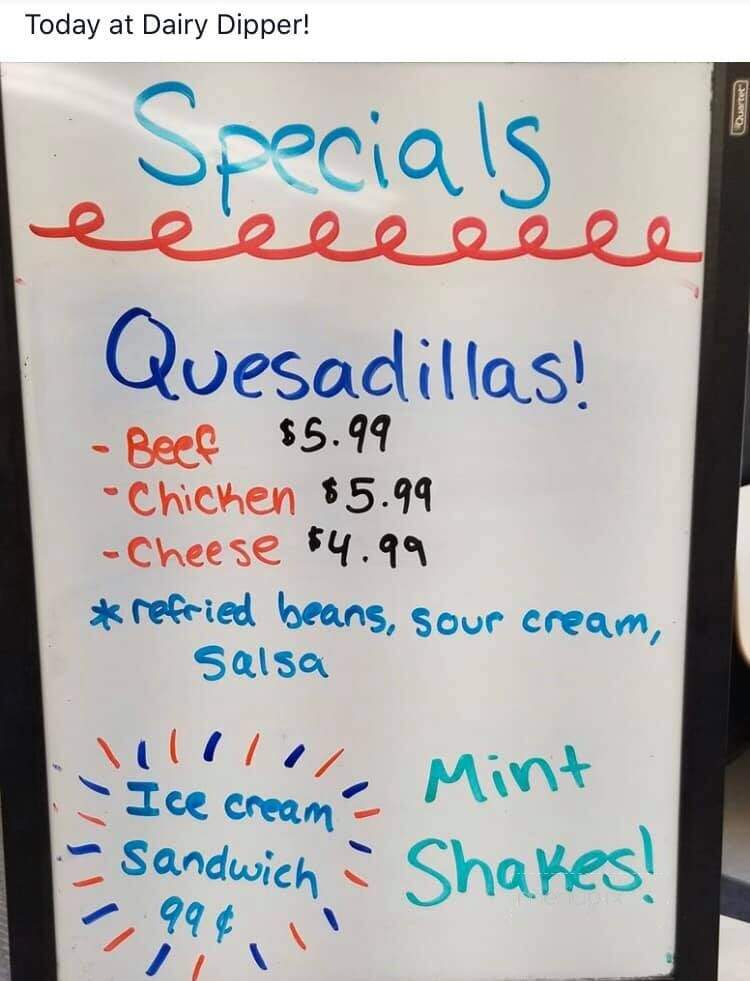 Today at Dairy Dipper!
Quartet
Specials
Quesadillas!
- Beef $5.99
- Chicken $5.99
- Cheese $4.99
* refried beans, sour cream,
salsa
Ice cream
Sandwich
99¢
Mint
Shakes!